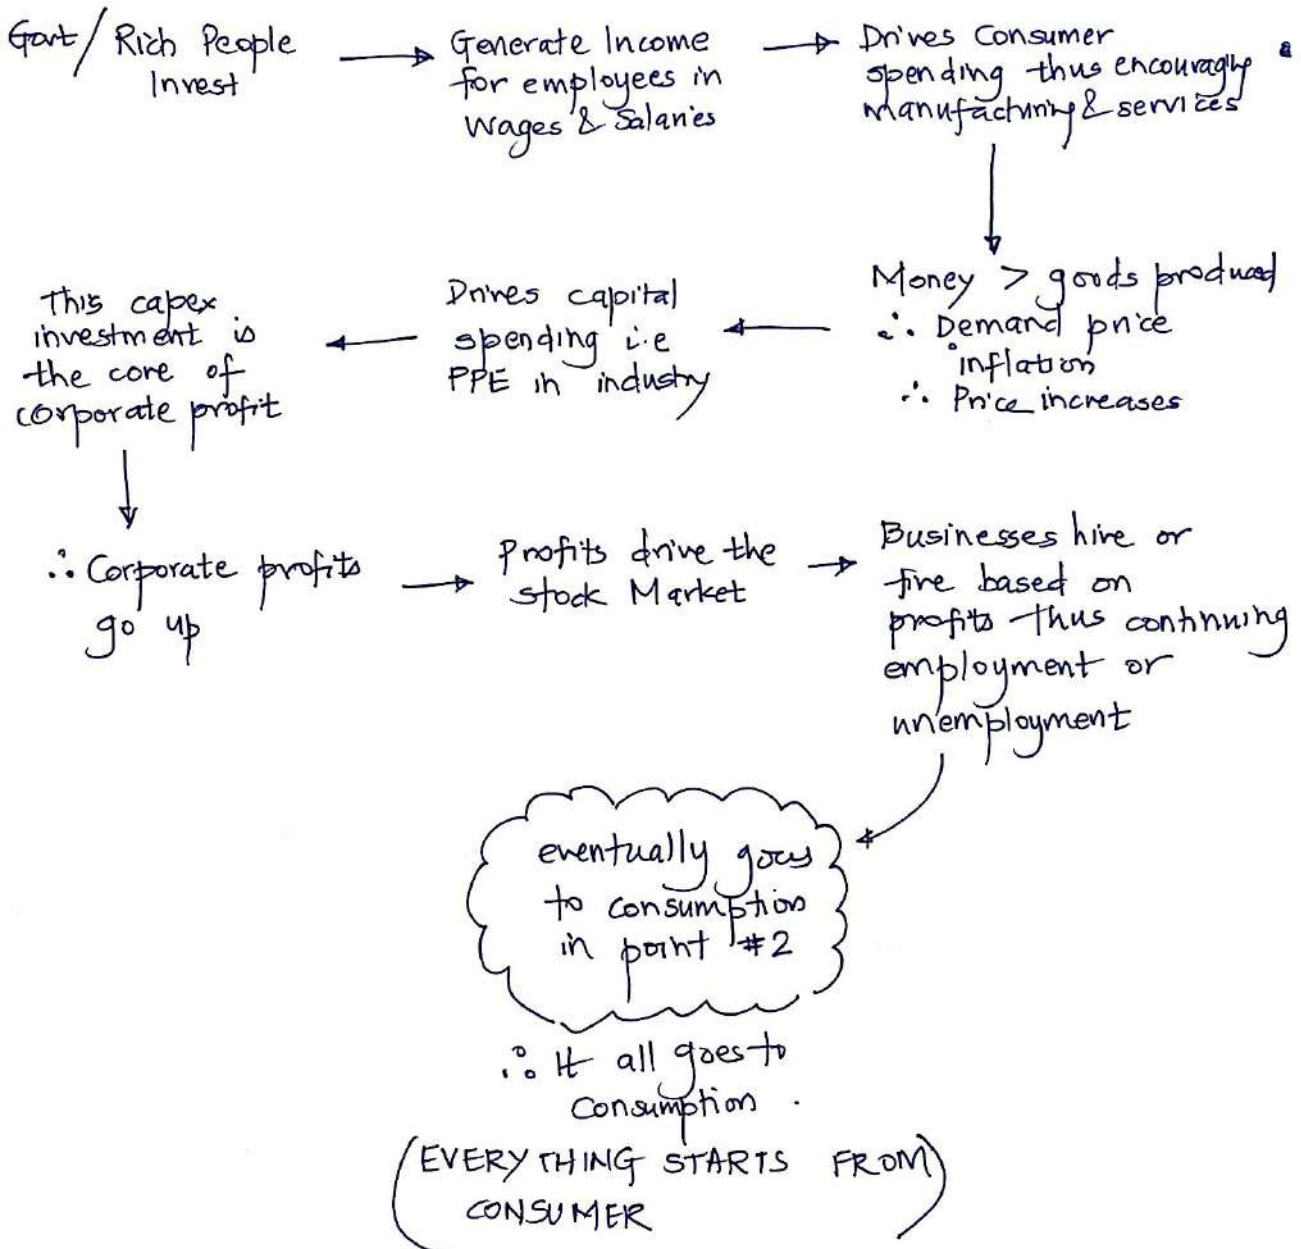 Govt/ Rich People
Invest
Generate Income
for employees in
Wages & Salaries
Drives Consumer
spending thus encouraging
manufacturing & services
Money > goods produced
∴ Demand price
inflation
∴ Price increases
Drives capital
spending i.e
PPE in industry
This capex
investment is
the core of
corporate profit
∴ Corporate profits
go up
Profits drive the
stock Market
Businesses hire or
fire based on
profits thus continuing
employment or
unemployment
eventually goes
to consumption
in point #2
∴ It all goes to
Consumption .
(EVERYTHING STARTS FROM
CONSUMER)